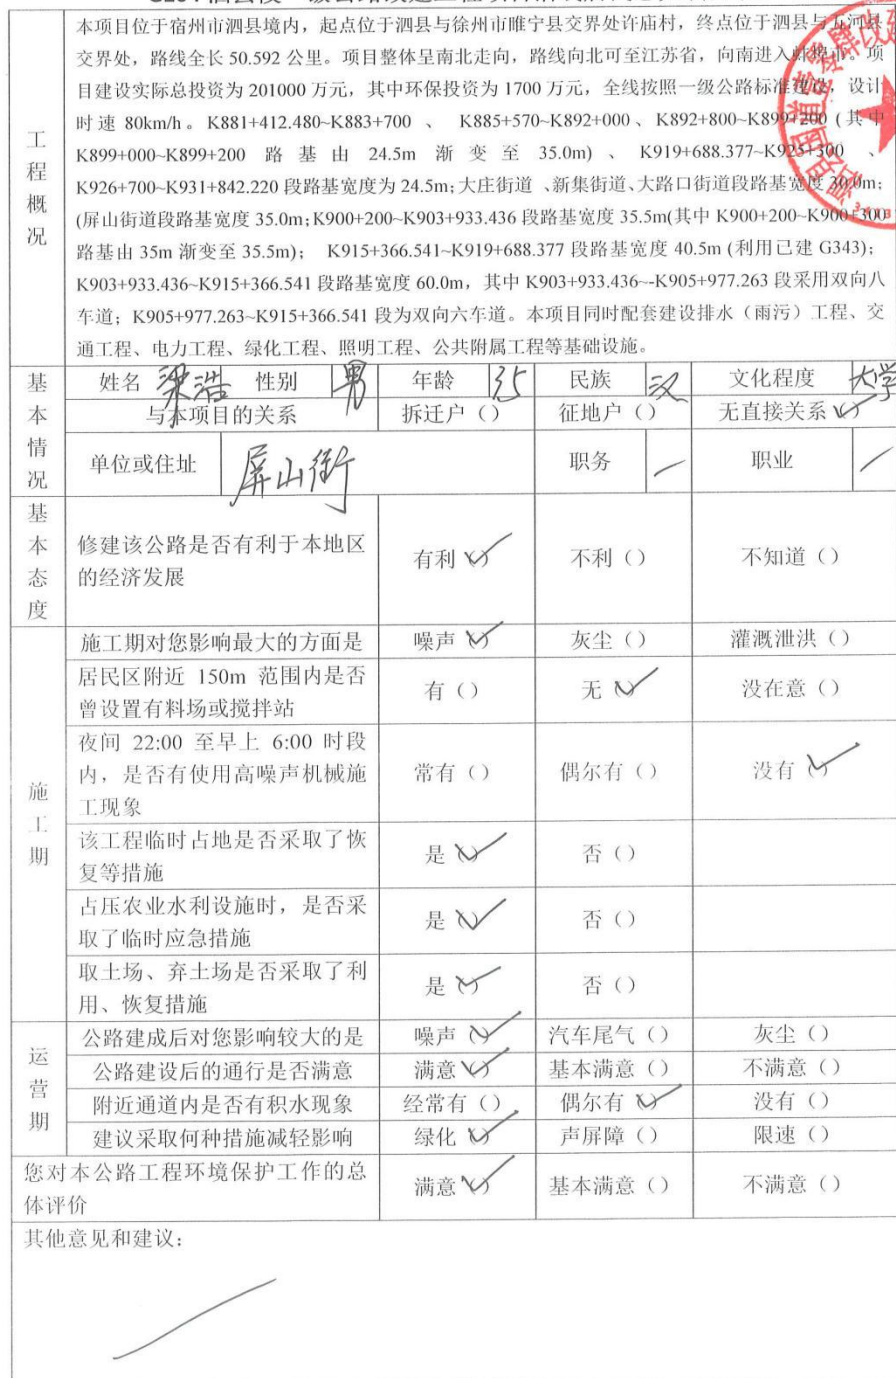 本项目位于宿州市泗县境内，起点位于泗县与徐州市睢宁县交界处许庙村，终点位于泗县与五河县
交界处，路线全长 50.592 公里。项目整体呈南北走向，路线向北可至江苏省，向南进入蚌埠市。项
目建设实际总投资为 201000 万元，其中环保投资为 1700 万元，全线按照一级公路标准建设，设计
时速 80km/h。K881+412.480~K883+700 、 K885+570~K892+000、K892+800~K899+200 (其中
K899+000~K899+200 路基由 24.5m 渐变至 35.0m)、 K919+688.377~K925+300 、
K926+700~K931+842.220 段路基宽度为 24.5m；大庄街道 、新集街道、大路口街道段路基宽度 30.0m；
(屏山街道段路基宽度 35.0m；K900+200~K903+933.436 段路基宽度 35.5m(其中 K900+200~K900+300
路基由 35m 渐变至 35.5m)； K915+366.541~K919+688.377 段路基宽度 40.5m (利用已建 G343)；
K903+933.436~K915+366.541 段路基宽度 60.0m，其中 K903+933.436~-K905+977.263 段采用双向八
车道；K905+977.263~K915+366.541 段为双向六车道。本项目同时配套建设排水（雨污）工程、交
通工程、电力工程、绿化工程、照明工程、公共附属工程等基础设施。
工程概况
基本情况
姓名 梁浩 性别 男 年龄 35 民族 汉 文化程度 大学
与本项目的关系 拆迁户（） 征地户（） 无直接关系（✓）
单位或住址 屏山街 职务 / 职业 /
基本态度
修建该公路是否有利于本地区 有利（✓） 不利（） 不知道（）
的经济发展
施工期
施工期对您影响最大的方面是 噪声（✓） 灰尘（） 灌溉泄洪（）
居民区附近 150m 范围内是否 有（） 无（✓） 没在意（）
曾设置有料场或搅拌站
夜间 22:00 至早上 6:00 时段
内，是否有使用高噪声机械施 常有（） 偶尔有（） 没有（✓）
工现象
该工程临时占地是否采取了恢 是（✓） 否（）
复等措施
占压农业水利设施时，是否采 是（✓） 否（）
取了临时应急措施
取土场、弃土场是否采取了利 是（✓） 否（）
用、恢复措施
运营期
公路建成后对您影响较大的是 噪声（✓） 汽车尾气（） 灰尘（）
公路建设后的通行是否满意 满意（✓） 基本满意（） 不满意（）
附近通道内是否有积水现象 经常有（） 偶尔有（✓） 没有（）
建议采取何种措施减轻影响 绿化（✓） 声屏障（） 限速（）
您对本公路工程环境保护工作的总 满意（✓） 基本满意（） 不满意（）
体评价
其他意见和建议：